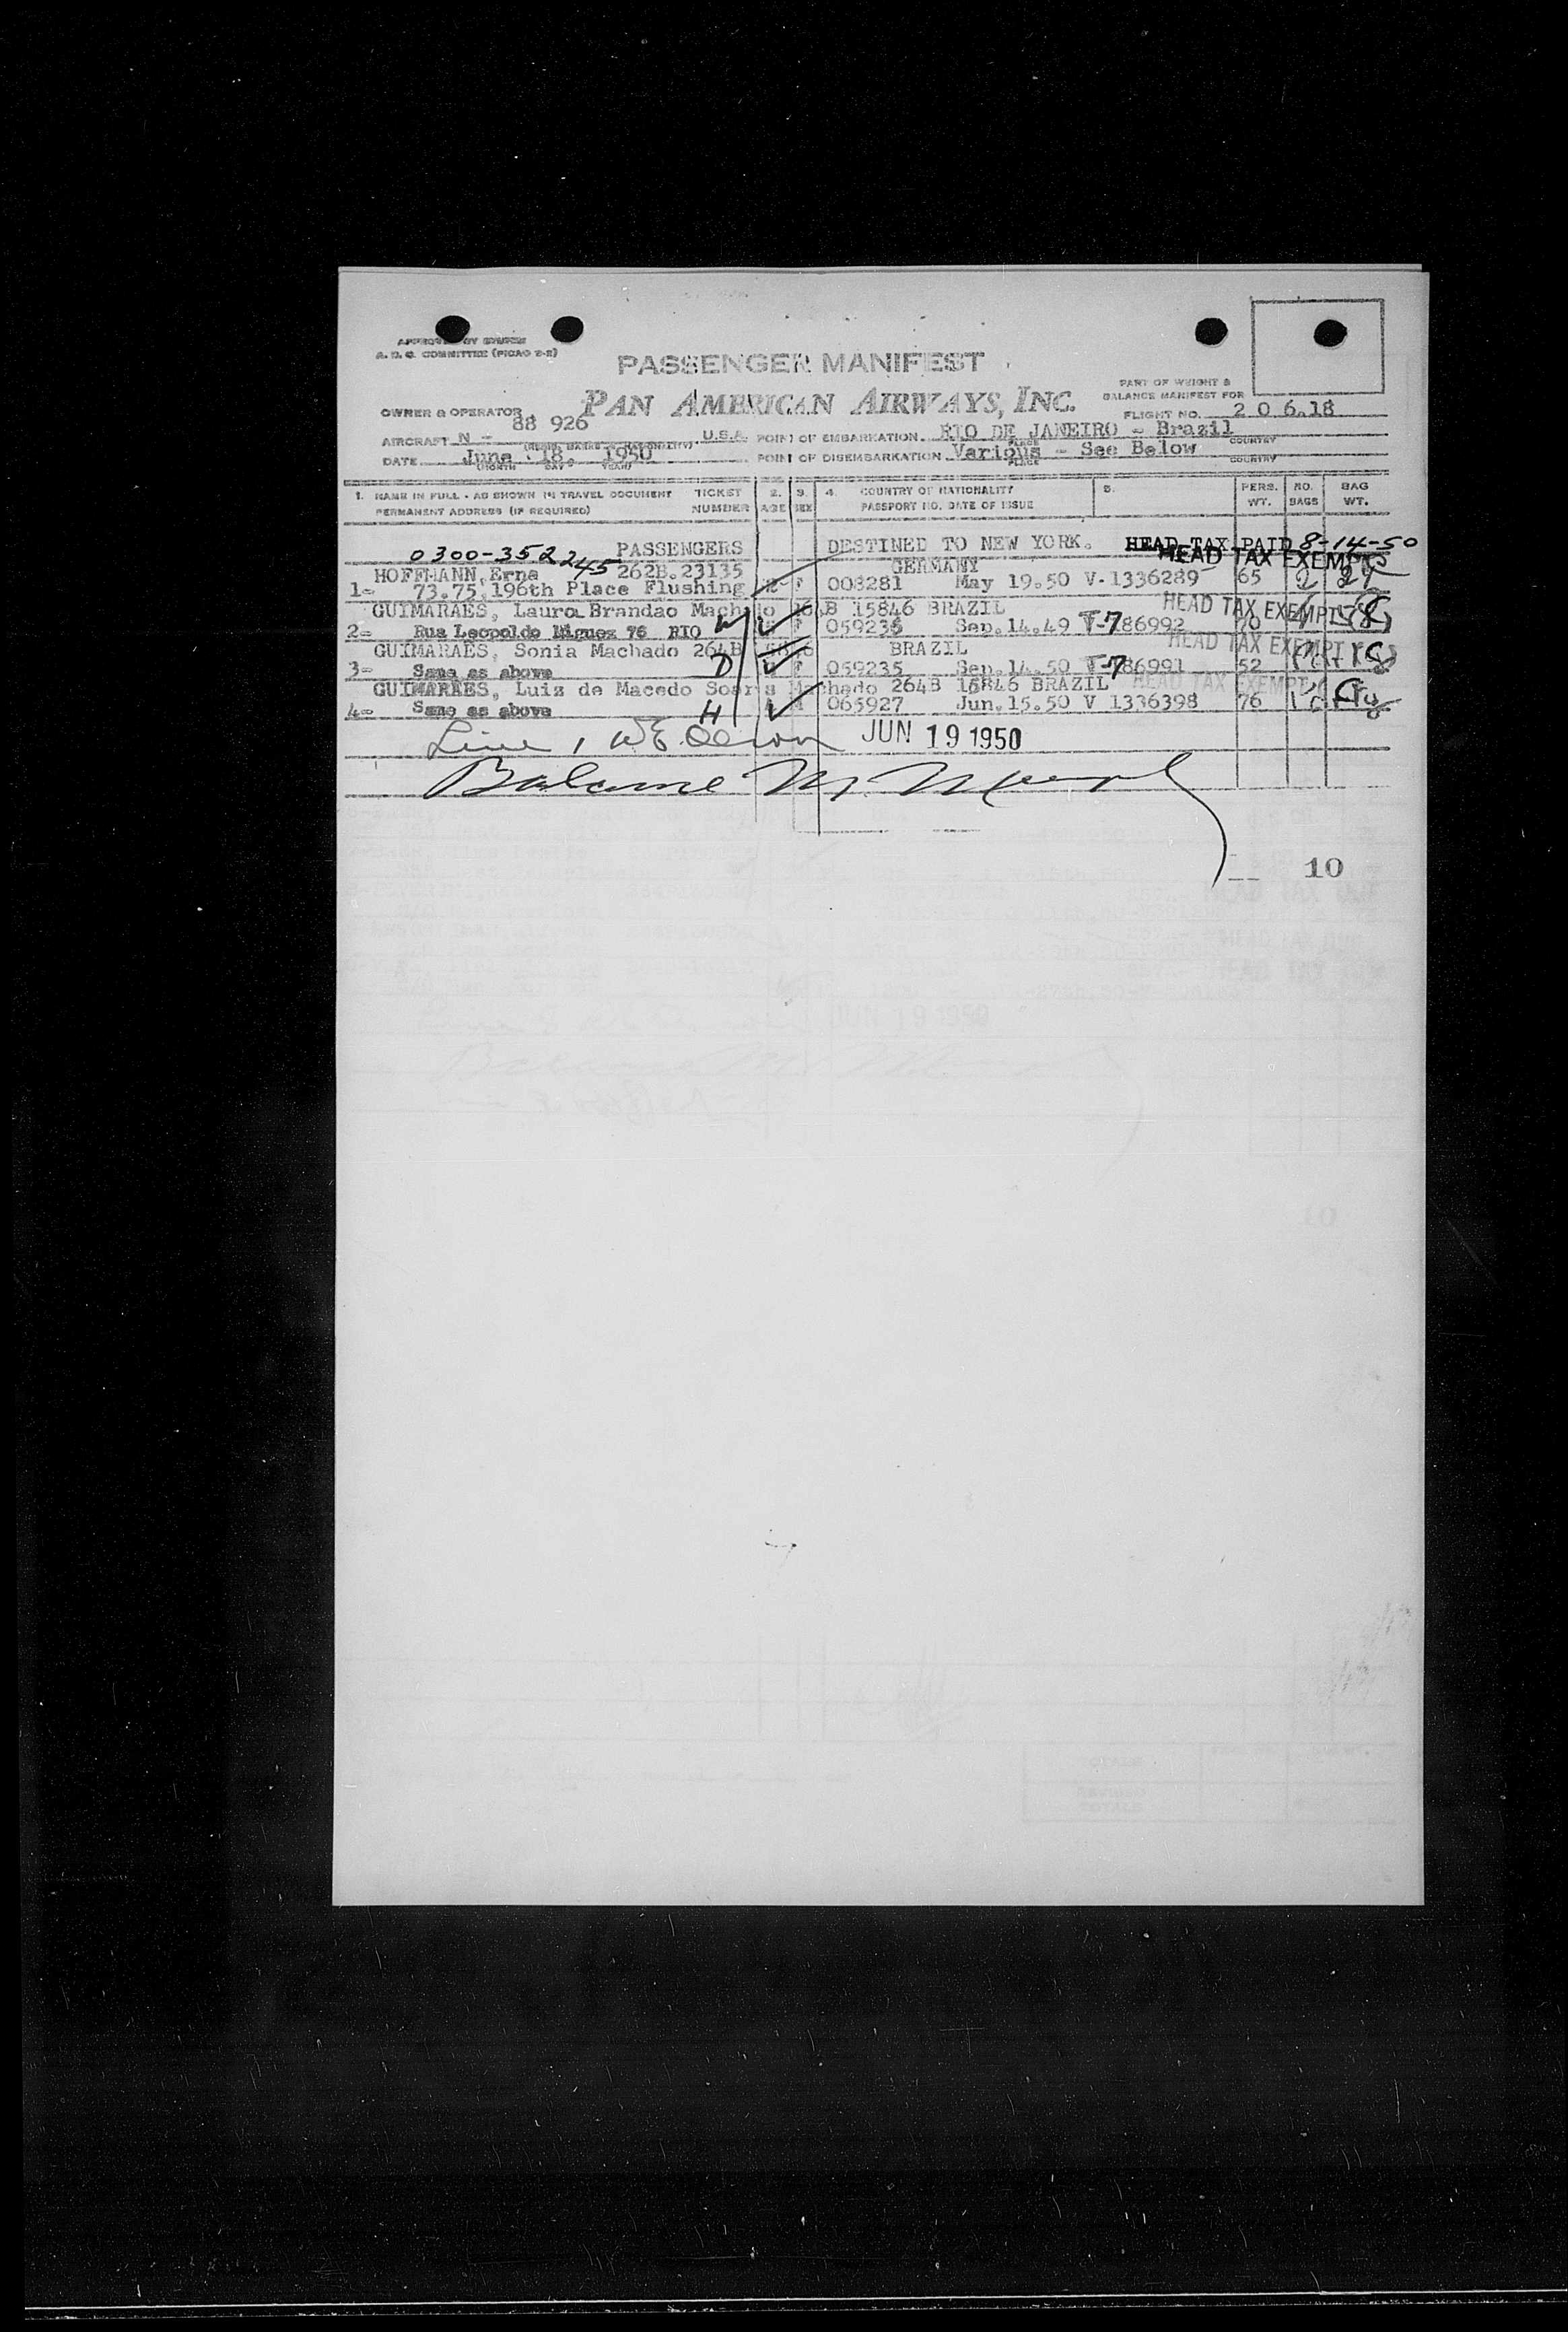 APPROVED BY
A. D. G. COMMITTEE (PICAO 2-2)
PASSENGER MANIFEST
PART OF WEIGHT &
BALANCE MANIFEST FOR
OWNER & OPERATOR PAN AMERICAN AIRWAYS, INC.
FLIGHT NO. 2 0 6.18
88 926
AIRCRAFT N - U.S.A. POINT OF EMBARKATION RIO DE JANEIRO - Brazil
PLACE COUNTRY
DATE June 18, 1950 POINT OF DISEMBARKATION Various - See Below
(MONTH DAY YEAR) PLACE COUNTRY
1. NAME IN FULL - AS SHOWN IN TRAVEL DOCUMENT TICKET 2. 3. 4. COUNTRY OF NATIONALITY 5. PERS. NO. BAG
PERMANENT ADDRESS (IF REQUIRED) NUMBER AGE SEX PASSPORT NO. DATE OF ISSUE WT. BAGS WT.
0300-352245 PASSENGERS DESTINED TO NEW YORK. HEAD TAX PAID 8-14-50
HEAD TAX EXEMPT
HOFFMANN, Erna 262B.23135 GERMANY
1- 73.75.196th Place Flushing F 008281 May 19.50 V-1336289 65 2
GUIMARAES, Laura Brandao Machado B 15846 BRAZIL HEAD TAX EXEMPT
2- Rua Leopoldo Miguez 76 RIO W F 059236 Sep.14.49 V-786992 70
GUIMARAES, Sonia Machado 264B BRAZIL HEAD TAX EXEMPT
3- Same as above D F 059235 Sep.14.50 V-786991 52
GUIMARAES, Luiz de Macedo Soares Machado 264B 15846 BRAZIL HEAD TAX EXEMPT
4- Same as above H M 065927 Jun.15.50 V 1336398 76
Line 1 JUN 19 1950
Balance M.
10